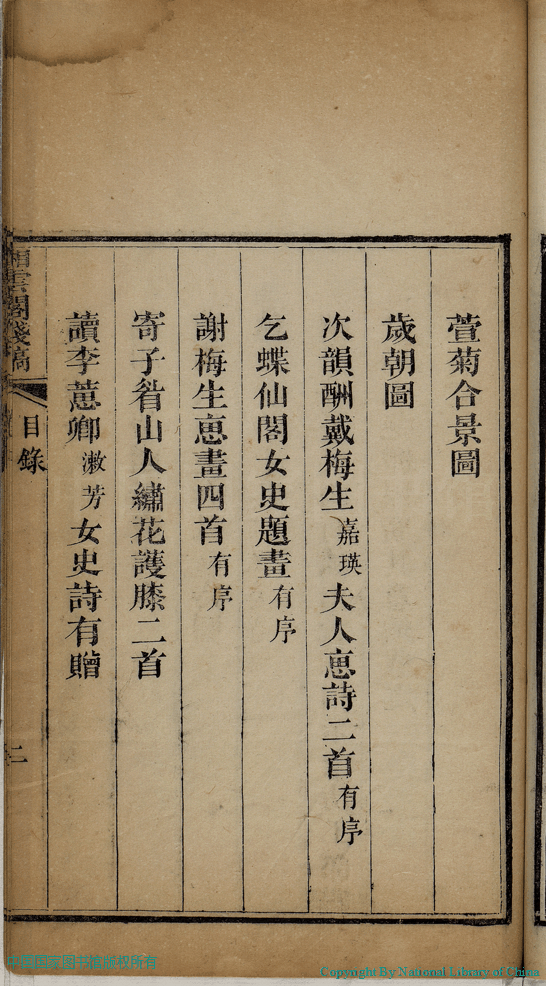 萱菊合景圖
歲朝圖
次韻酬戴梅生嘉瑛夫人惠詩二首有序
乞蝶仙閣女史題畫有序
謝梅生惠畫四首有序
寄子眷山人繡花護膝二首
讀李蕙卿漱芳女史詩有贈
雲閣殘稿
目錄
二
中国国家图书馆版权所有
Copyright By National Library of China